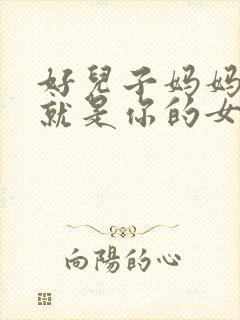 好兒子妈妈
就是你的女
向陽的心